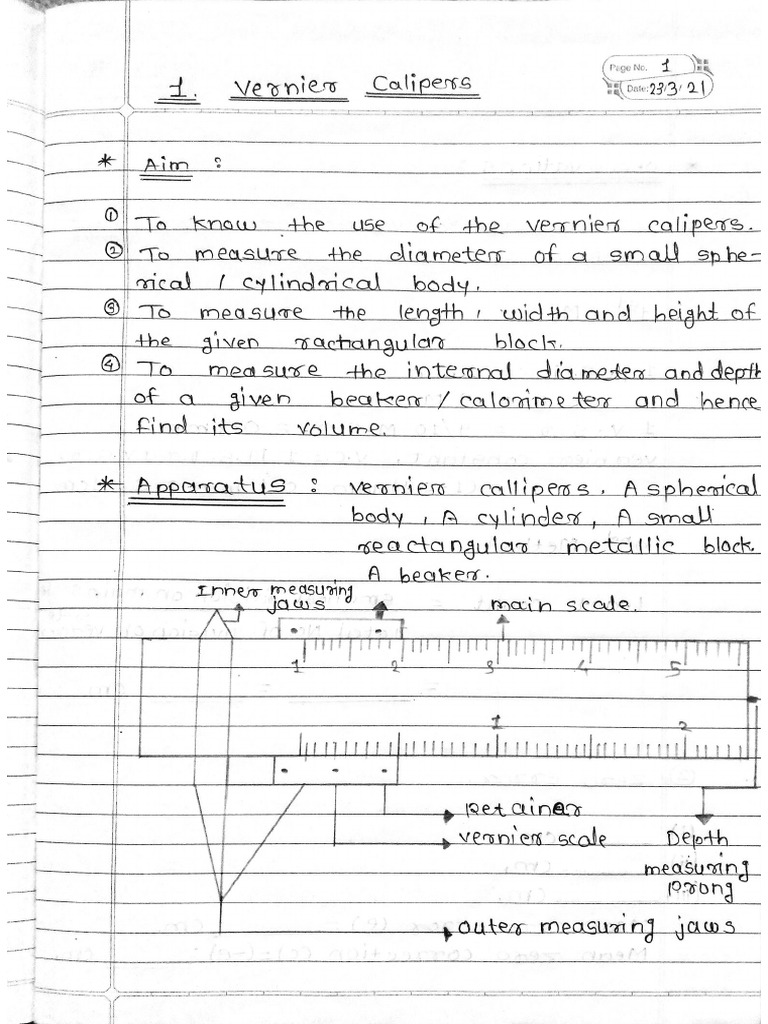 Page No. 1
Date: 23/3/21
1. Vernier Calipers
* Aim :
① To know the use of the vernier calipers.
② To measure the diameter of a small sphe-
rical / cylindrical body.
③ To measure the length, width and height of
the given ractangular block.
④ To measure the internal diameter and depth
of a given beaker / calorimeter and hence
find its volume.
* Apparatus : vernier callipers. A spherical
body, A cylinder, A small
reactangular metallic block.
A beaker.
Inner measuring
jaws
main scale.
1 2 3 4 5
1 2
Retainer
vernier scale
Depth
measuring
prong
outer measuring jaws